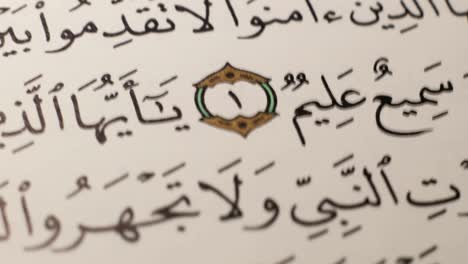 ٱلَّذِينَ ءَامَنُوا۟ لَا تُقَدِّمُوا۟ بَيْنَ
سَمِيعٌ عَلِيمٌ ١ يَـٰٓأَيُّهَا ٱلَّذِ
تِ ٱلنَّبِيِّ وَلَا تَجْهَرُوا۟